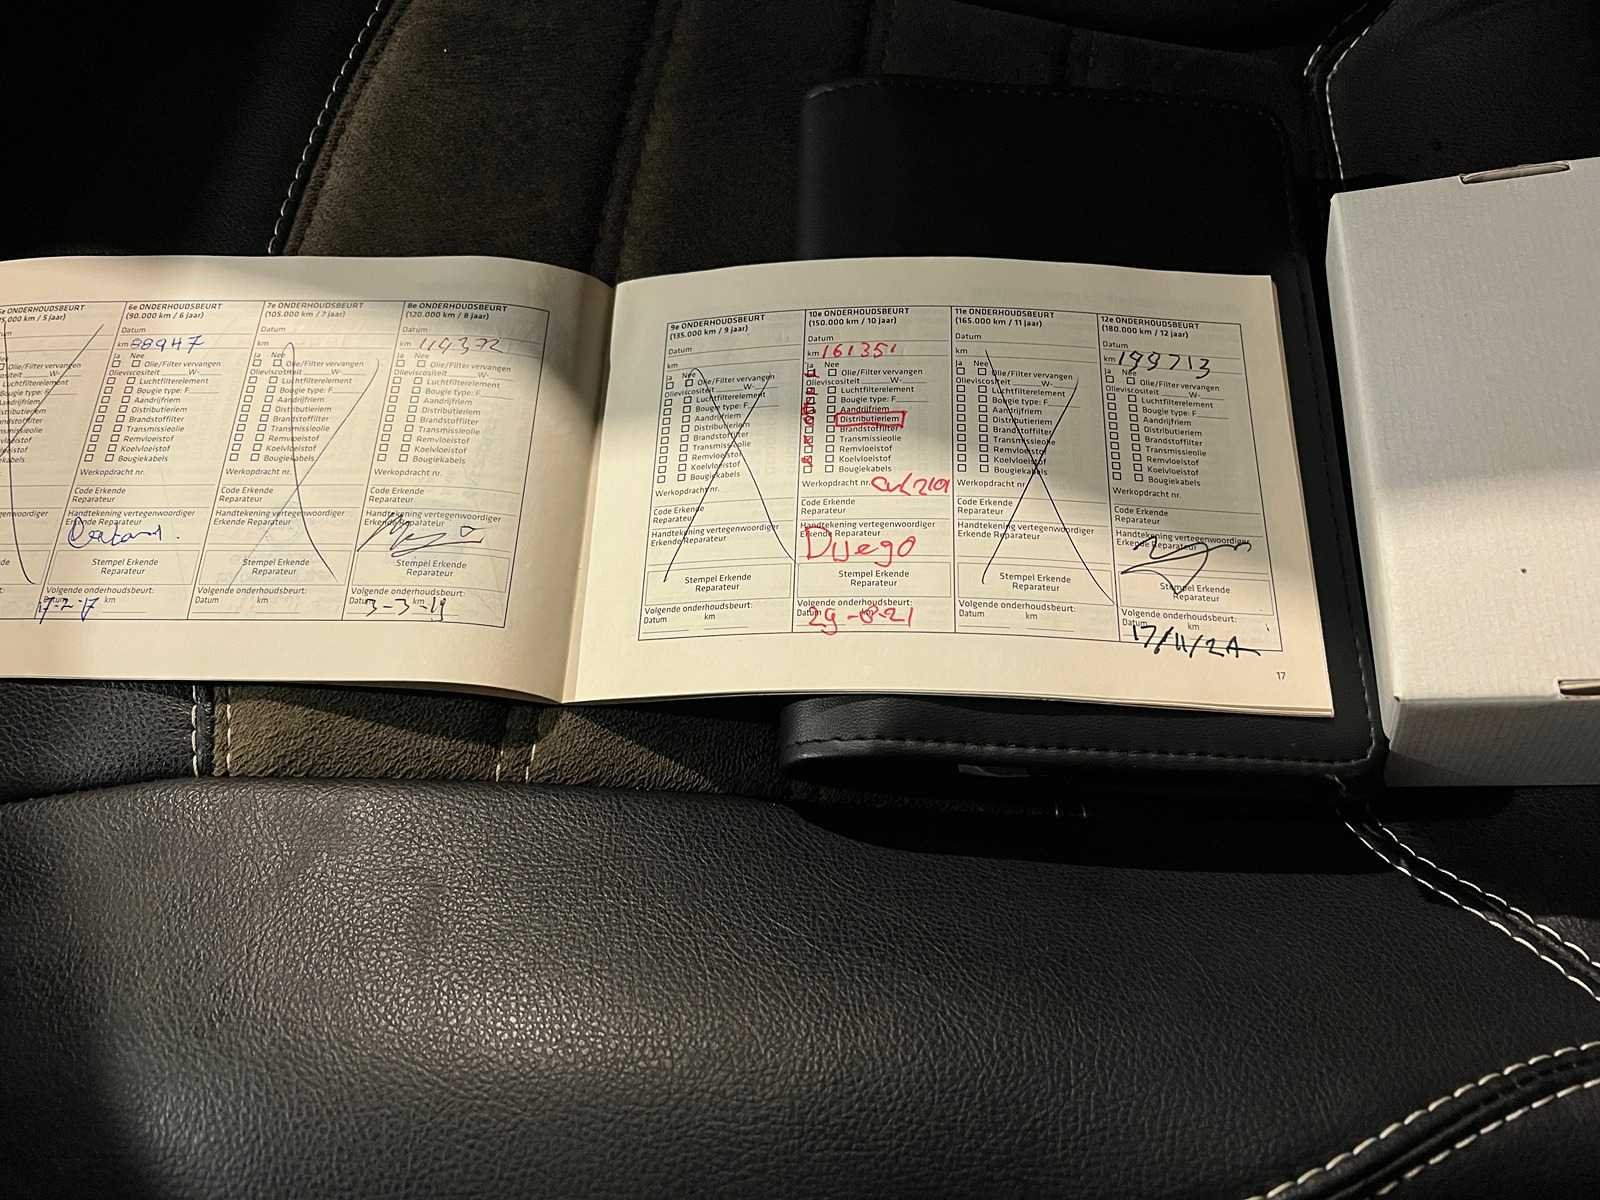 5e ONDERHOUDSBEURT
(75.000 km / 5 jaar)
Luchtfilterelement
Bougie type: F
Aandrijfriem
6e ONDERHOUDSBEURT
(90.000 km / 6 jaar)
Datum
km 88947
Ja Nee
Olie/Filter vervangen
Olieviscositeit W-
Luchtfilterelement
Bougie type: F
Aandrijfriem
Distributieriem
Brandstoffilter
Transmissieolie
Remvloeistof
Koelvloeistof
Bougiekabels
Werkopdracht nr.
Code Erkende
Reparateur
Handtekening vertegenwoordiger
Erkende Reparateur
Stempel Erkende
Reparateur
Volgende onderhoudsbeurt:
Datum km
17-2-17
7e ONDERHOUDSBEURT
(105.000 km / 7 jaar)
Datum
km
Ja Nee
Olie/Filter vervangen
Olieviscositeit W-
Luchtfilterelement
Bougie type: F
Aandrijfriem
Distributieriem
Brandstoffilter
Transmissieolie
Remvloeistof
Koelvloeistof
Bougiekabels
Werkopdracht nr.
Code Erkende
Reparateur
Handtekening vertegenwoordiger
Erkende Reparateur
Stempel Erkende
Reparateur
Volgende onderhoudsbeurt:
Datum km
8e ONDERHOUDSBEURT
(120.000 km / 8 jaar)
Datum
km 119372
Ja Nee
Olie/Filter vervangen
Olieviscositeit W-
Luchtfilterelement
Bougie type: F
Aandrijfriem
Distributieriem
Brandstoffilter
Transmissieolie
Remvloeistof
Koelvloeistof
Bougiekabels
Werkopdracht nr.
Code Erkende
Reparateur
Handtekening vertegenwoordiger
Erkende Reparateur
Stempel Erkende
Reparateur
Volgende onderhoudsbeurt:
Datum km
3-3-19
9e ONDERHOUDSBEURT
(135.000 km / 9 jaar)
Datum
km
Ja Nee
Olie/Filter vervangen
Olieviscositeit W-
Luchtfilterelement
Bougie type: F
Aandrijfriem
Distributieriem
Brandstoffilter
Transmissieolie
Remvloeistof
Koelvloeistof
Bougiekabels
Werkopdracht nr.
Code Erkende
Reparateur
Handtekening vertegenwoordiger
Erkende Reparateur
Stempel Erkende
Reparateur
Volgende onderhoudsbeurt:
Datum km
10e ONDERHOUDSBEURT
(150.000 km / 10 jaar)
Datum
km 161351
Ja Nee
Olie/Filter vervangen
Olieviscositeit W-
Luchtfilterelement
Bougie type: F
Aandrijfriem
Distributieriem
Brandstoffilter
Transmissieolie
Remvloeistof
Koelvloeistof
Bougiekabels
Werkopdracht nr.
Code Erkende
Reparateur
Handtekening vertegenwoordiger
Erkende Reparateur
Stempel Erkende
Reparateur
Volgende onderhoudsbeurt:
Datum km
11e ONDERHOUDSBEURT
(165.000 km / 11 jaar)
Datum
km
Ja Nee
Olie/Filter vervangen
Olieviscositeit W-
Luchtfilterelement
Bougie type: F
Aandrijfriem
Distributieriem
Brandstoffilter
Transmissieolie
Remvloeistof
Koelvloeistof
Bougiekabels
Werkopdracht nr.
Code Erkende
Reparateur
Handtekening vertegenwoordiger
Erkende Reparateur
Stempel Erkende
Reparateur
Volgende onderhoudsbeurt:
Datum km
12e ONDERHOUDSBEURT
(180.000 km / 12 jaar)
Datum
km 199713
Ja Nee
Olie/Filter vervangen
Olieviscositeit W-
Luchtfilterelement
Bougie type: F
Aandrijfriem
Distributieriem
Brandstoffilter
Transmissieolie
Remvloeistof
Koelvloeistof
Bougiekabels
Werkopdracht nr.
Code Erkende
Reparateur
Handtekening vertegenwoordiger
Erkende Reparateur
Stempel Erkende
Reparateur
Volgende onderhoudsbeurt:
Datum km
17